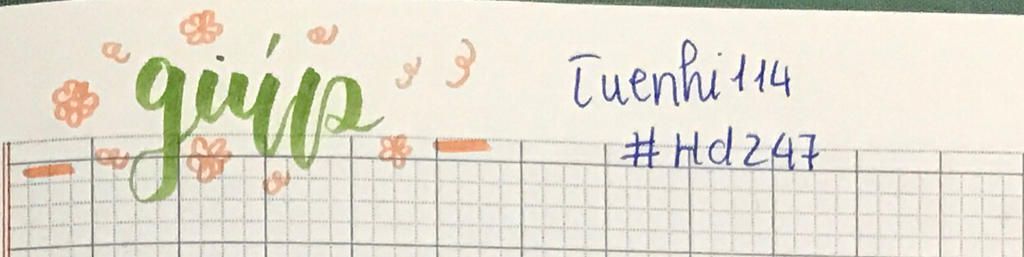 giúp
Tuenhi114
#Hd247